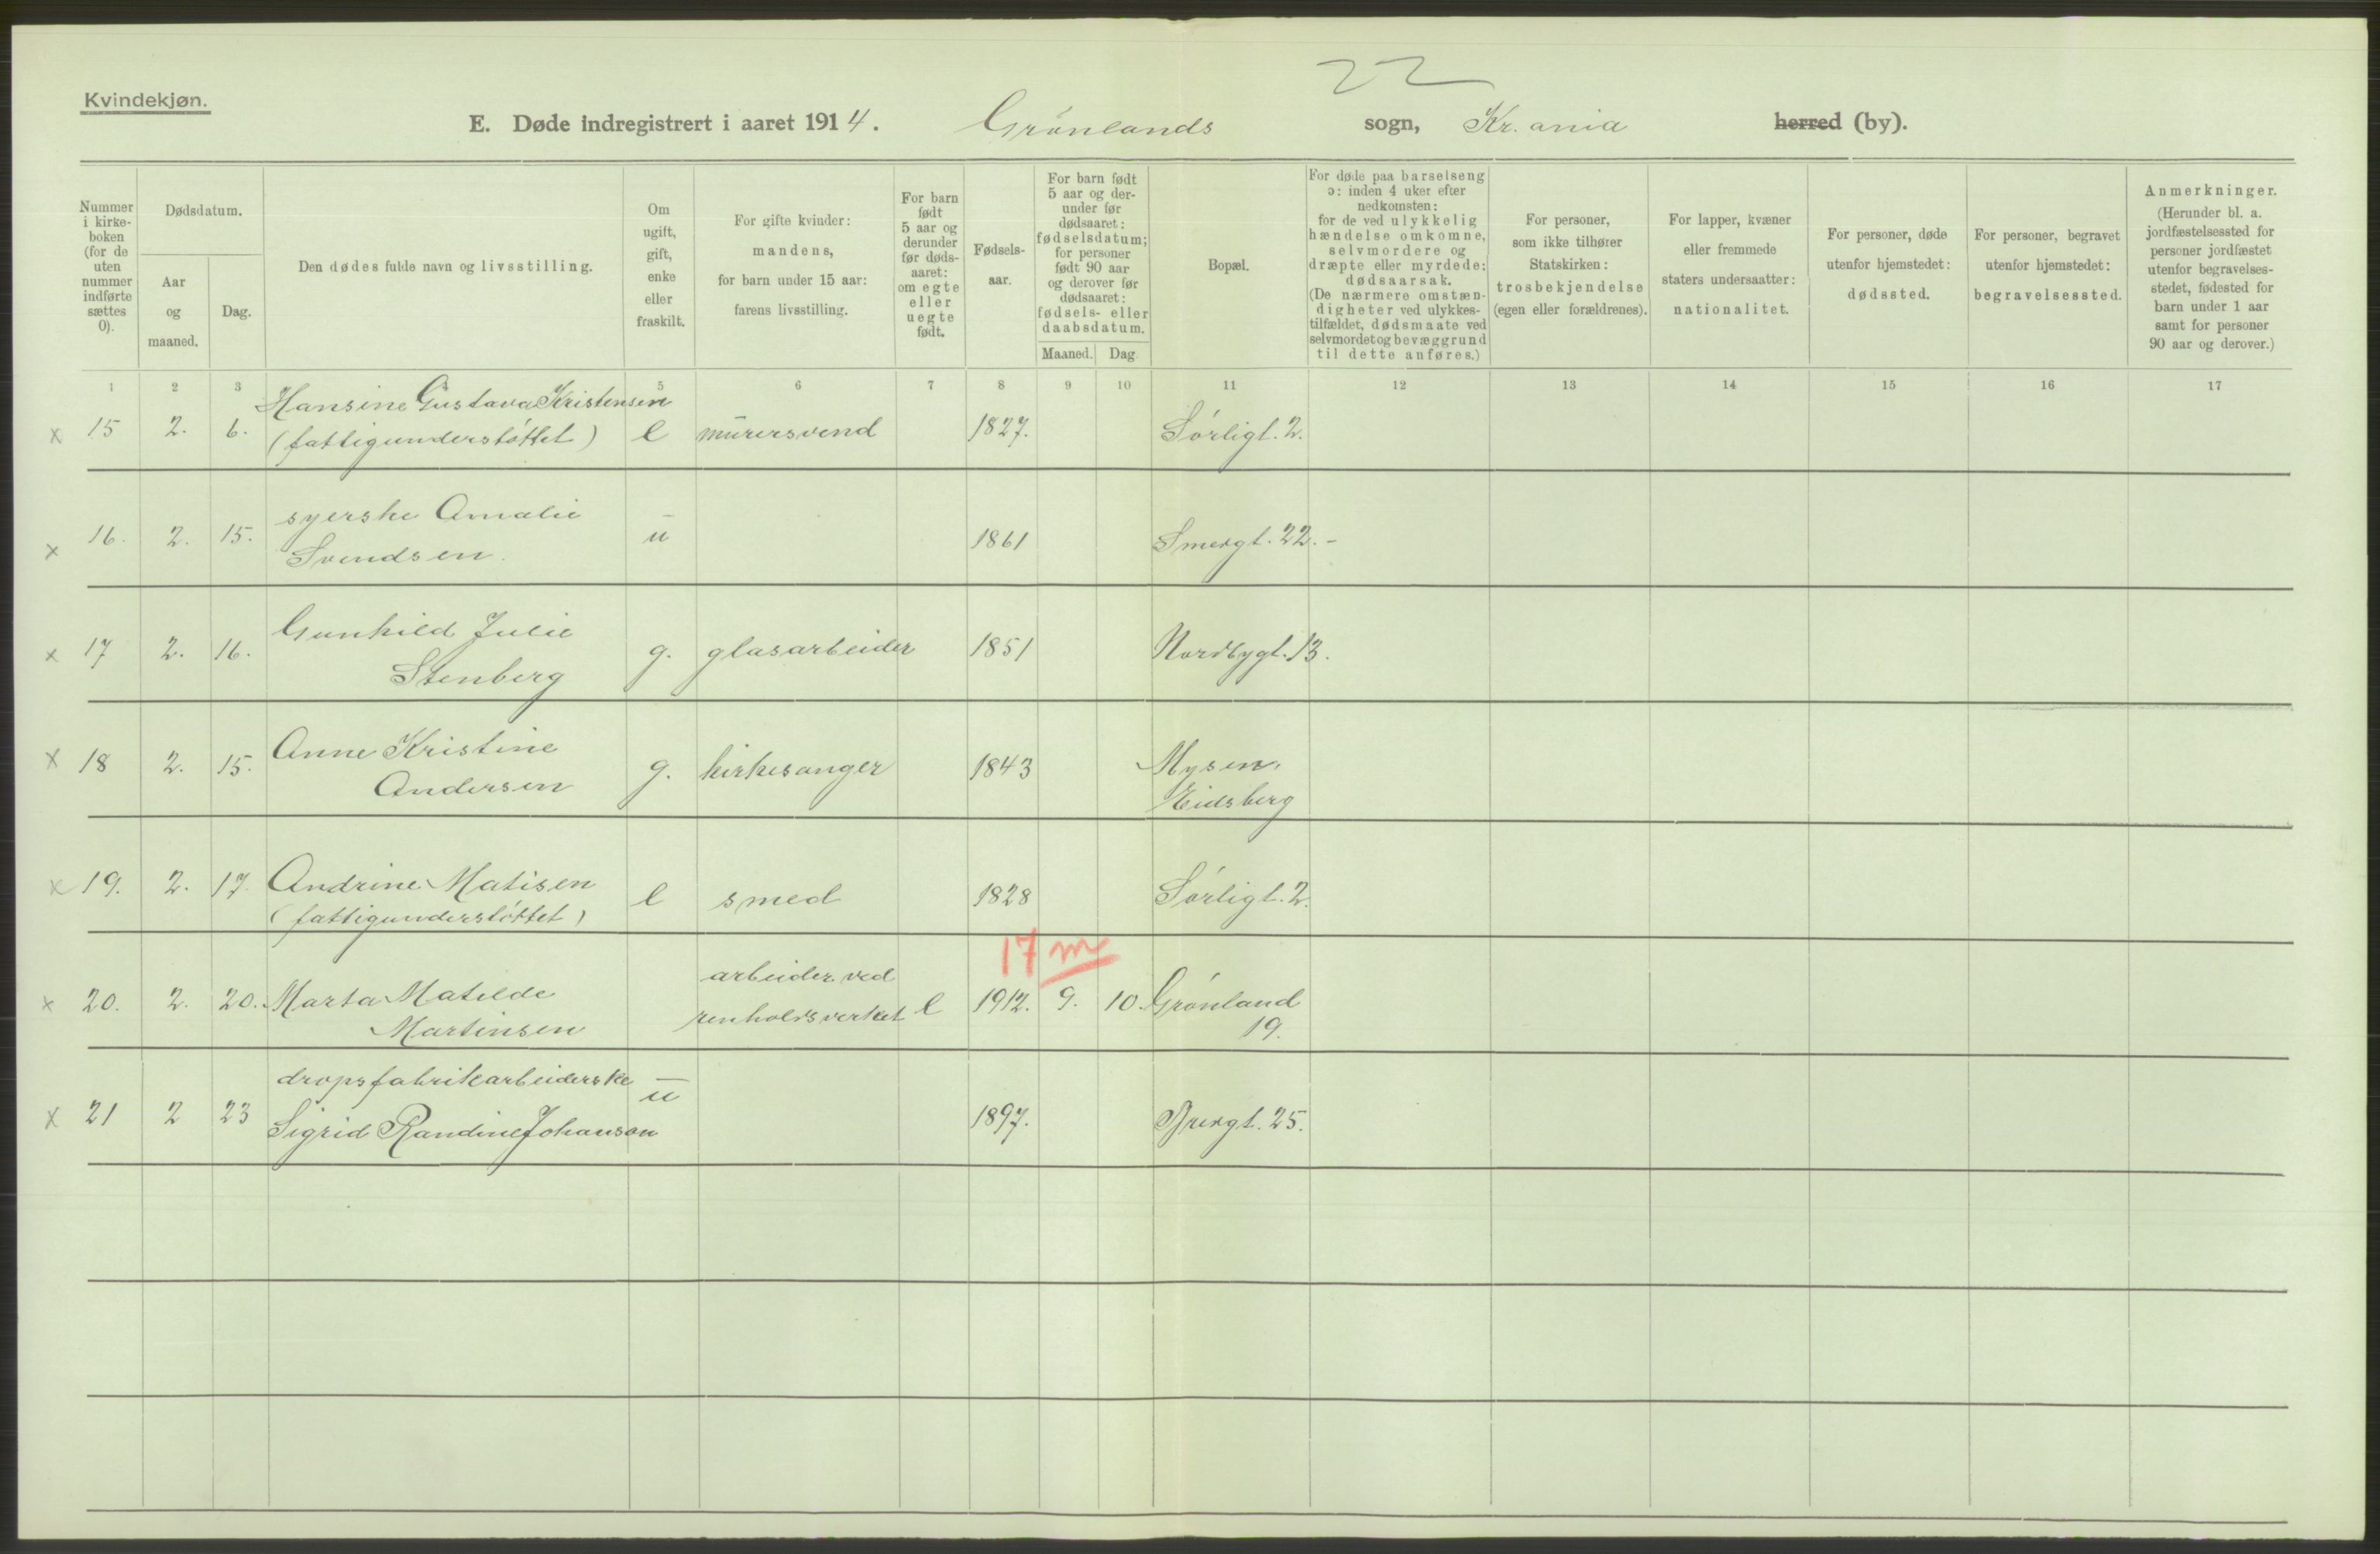 22
Kvindekjøn.
E. Døde indregistrert i aaret 1914. Grønlands sogn, Kr.ania herred (by).
Nummer i kirkeboken (for de uten nummer indførte sættes 0).
Dødsdatum.
Aar og maaned.
Dag.
Den dødes fulde navn og livsstilling.
Om ugift, gift, enke eller fraskilt.
For gifte kvinder: mandens, for barn under 15 aar: farens livsstilling.
For barn født 5 aar og derunder før døds-aaret: om egte eller uegte født.
Fødsels-aar.
For barn født 5 aar og der-under før dødsaaret: fødselsdatum; for personer født 90 aar og derover før dødsaaret: fødsels- eller daabsdatum.
Maaned. Dag
Bopæl.
For døde paa barselseng ɔ: inden 4 uker efter nedkomsten: for de ved ulykkelig hændelse omkomne, selvmordere og dræpte eller myrdede: dødsaarsak. (De nærmere omstæn-digheter ved ulykkes-tilfældet, dødsmaate ved selvmordet og bevæggrund til dette anføres.)
For personer, som ikke tilhører Statskirken: trosbekjendelse (egen eller forældrenes).
For lapper, kvæner eller fremmede staters undersaatter: nationalitet.
For personer, døde utenfor hjemstedet: dødssted.
For personer, begravet utenfor hjemstedet: begravelsessted.
Anmerkninger. (Herunder bl. a. jordfæstelsessted for personer jordfæstet utenfor begravelses-stedet, fødested for barn under 1 aar samt for personer 90 aar og derover.)
1 2 3 5 6 7 8 9 10 11 12 13 14 15 16 17
Hansine Gustava Kristensen
x 15 2. 6. (fattigunderstøttet) e murersvend 1827. Sørligt. 2.
syerske Amalie
x 16. 2. 15. Svendsen. u 1861 Smergt. 22.-
Gunhild Julie
x 17 2. 16. Stenberg g. glasarbeider 1851 Nordbygt. 13.
Anne Kristine Mysen,
x 18 2. 15. Andersen g. kirkesanger 1843 Eidsberg
x 19. 2. 17. Andrine Matisen e smed 1828 Sørligt. 2.
(fattigunderstøttet)
17 m
arbeider ved
x 20. 2. 20. Marta Matilde renholdsverket e 1912. 9. 10. Grønland
Martinsen 19.
dropsfabrikarbeiderske
x 21 2 23 Sigrid Randine Johanson u 1897. Breigt. 25.